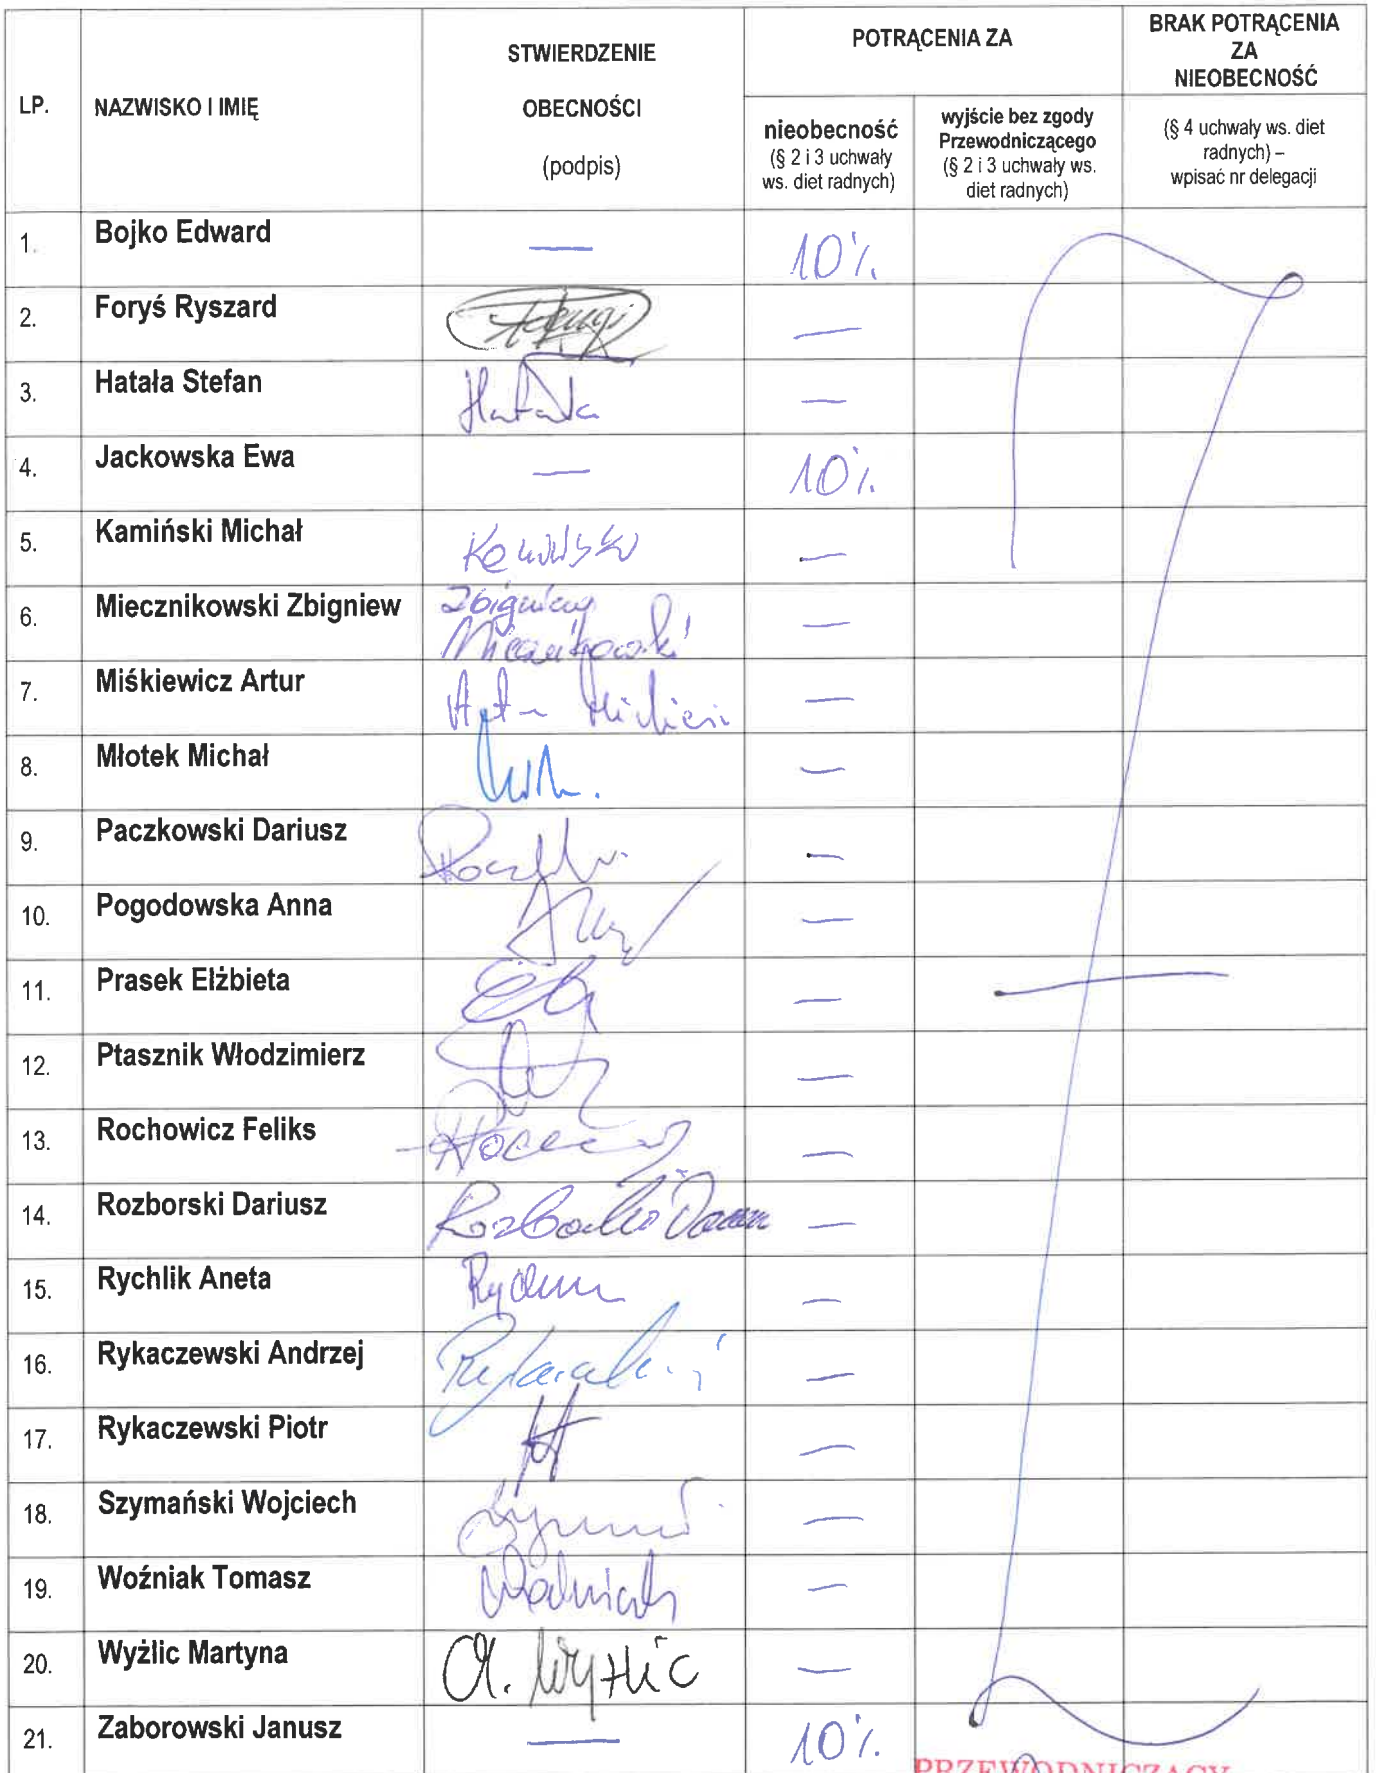 LP.
NAZWISKO I IMIĘ
STWIERDZENIE
OBECNOŚCI
(podpis)
POTRĄCENIA ZA
nieobecność
(§ 2 i 3 uchwały
ws. diet radnych)
wyjście bez zgody
Przewodniczącego
(§ 2 i 3 uchwały ws.
diet radnych)
BRAK POTRĄCENIA
ZA
NIEOBECNOŚĆ
(§ 4 uchwały ws. diet
radnych) –
wpisać nr delegacji
1. Bojko Edward — 10%
2. Foryś Ryszard —
3. Hatała Stefan Hatała —
4. Jackowska Ewa — 10%
5. Kamiński Michał —
6. Miecznikowski Zbigniew Zbigniew —
Miecznikowski
7. Miśkiewicz Artur Artur —
8. Młotek Michał —
9. Paczkowski Dariusz —
10. Pogodowska Anna —
11. Prasek Elżbieta —
12. Ptasznik Włodzimierz —
13. Rochowicz Feliks —
14. Rozborski Dariusz —
15. Rychlik Aneta —
16. Rykaczewski Andrzej —
17. Rykaczewski Piotr —
18. Szymański Wojciech —
19. Woźniak Tomasz Woźniak —
20. Wyżlic Martyna M. Wyżlic —
21. Zaborowski Janusz — 10%
PRZEWODNICZĄCY